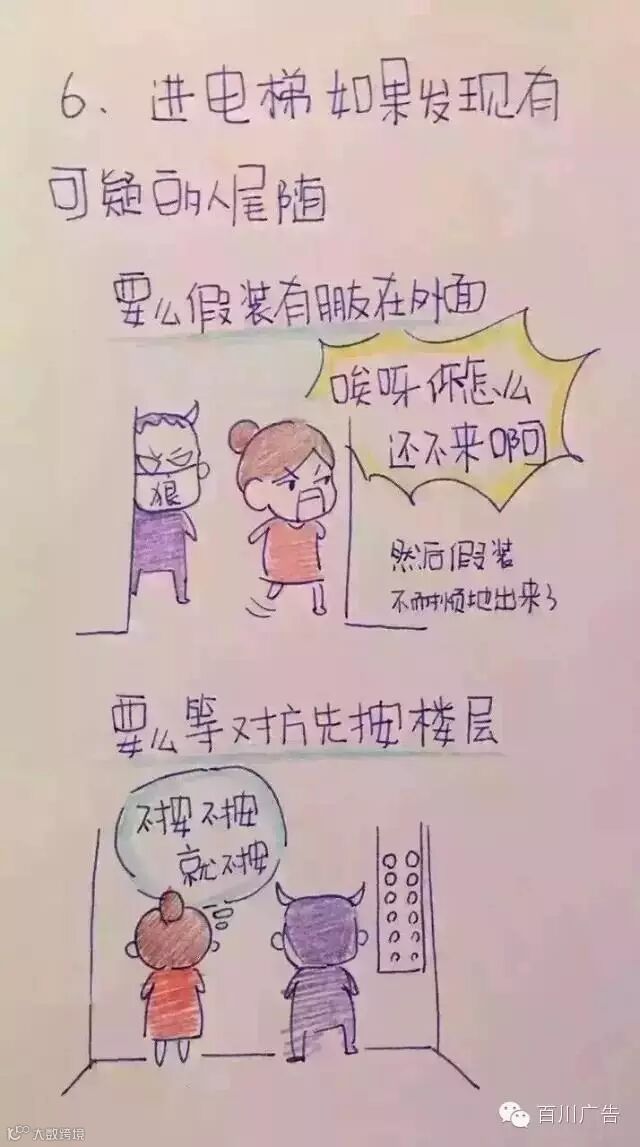 6、进电梯如果发现有
可疑的人尾随
要么假装有朋友在外面
唉呀你怎么
还不来啊
狼
然后假装
不耐烦地出来了
要么等对方先按楼层
不按不按
就不按
大数跨境
百川广告